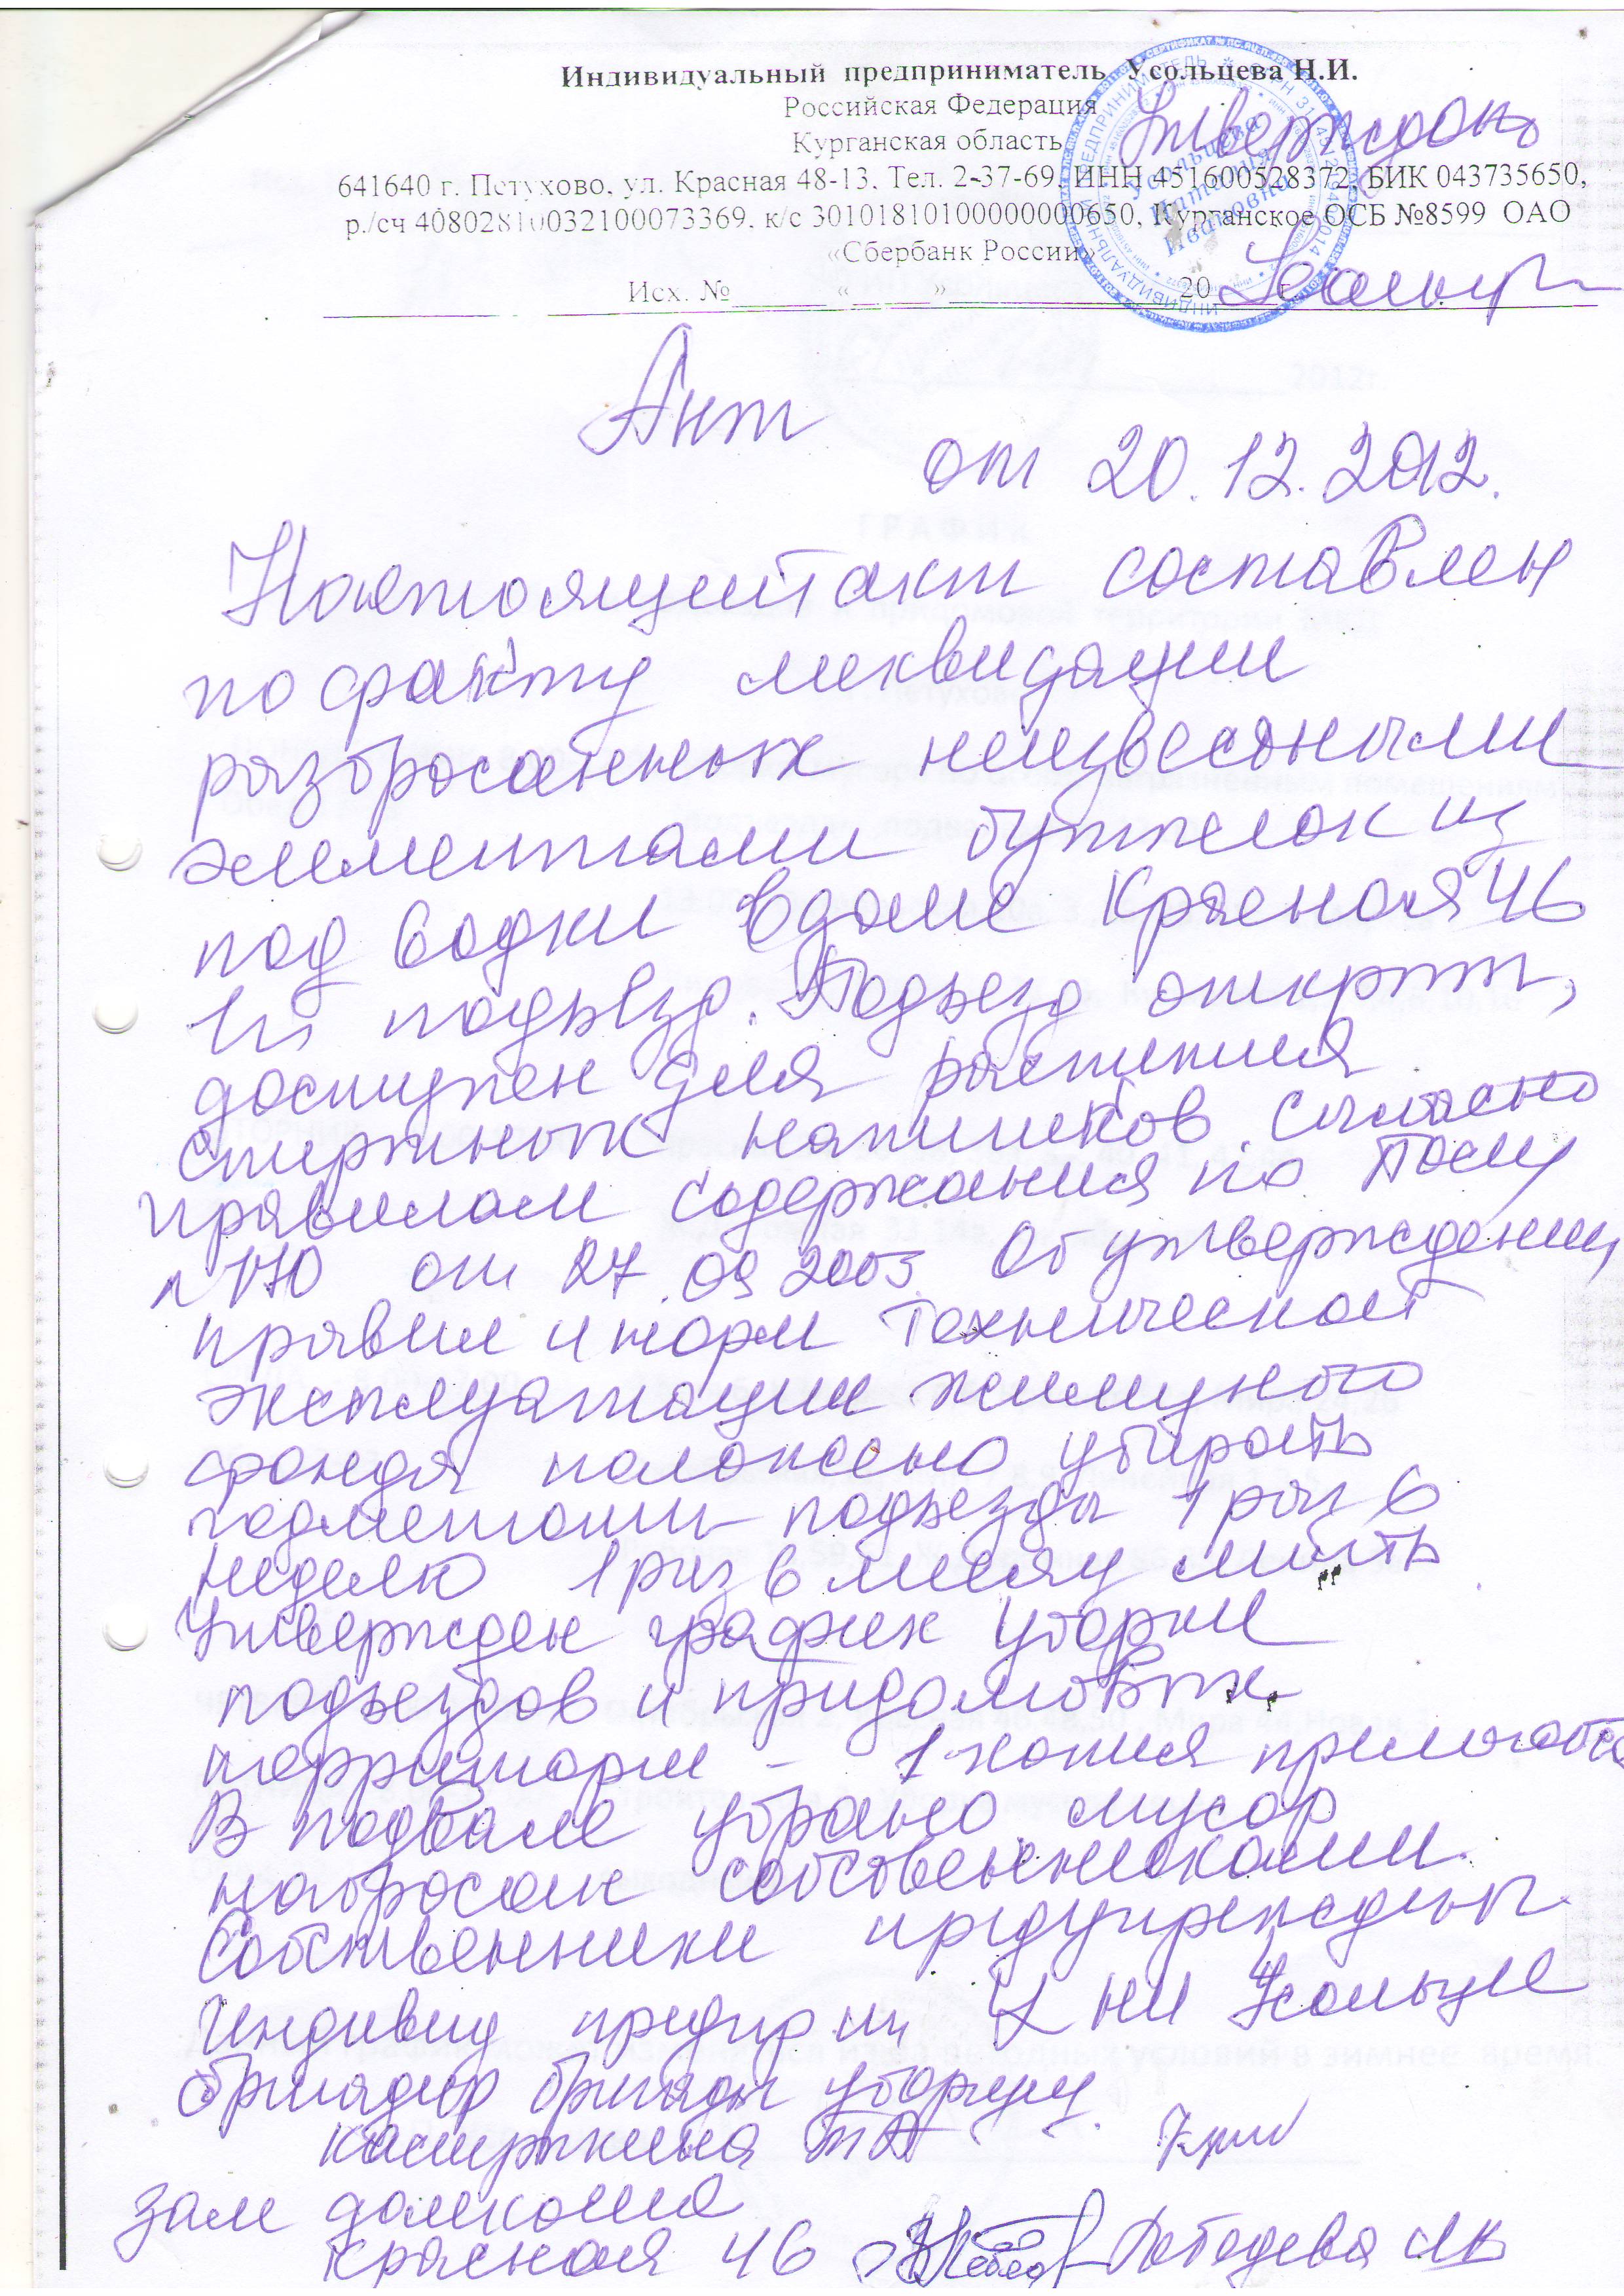 Индивидуальный предприниматель Усольцева Н.И.
Российская Федерация
Утверждаю
Курганская область
641640 г. Петухово, ул. Красная 48-13. Тел. 2-37-69. ИНН 451600528372, БИК 043735650,
р./сч 40802810032100073369. к/с 30101810100000000650, Курганское ОСБ №8599 ОАО
«Сбербанк России»
Исх. №______ «_____»____________________20____г.
Усольцева Наталия Ивановна
Акт
от 20.12.2012.
Настоящий акт составлен
по факту ликвидации
разбросанных неизвесными
элементами бутылок из
под водки в доме Красная 46
1й подъезд. Подъезд открыт,
доступен для распития
спиртных напитков. Согласно
правилам содержания по Пост
№170 от 27.09.2003. Об утверждении
правил и норм технической
эксплуатации жилищного
фонда положено убирать
подметать подъезды 1 раз в
неделю 1 раз в месяц мыть
Утвержден график уборки
подъездов и придомовых
территори - 1 копия прилагается
В подвале убрано мусор
набросан собственниками.
Собственники предупрежден
Индивид предпр НИ Усольце
бригадир бригады уборщиц
ТА
зам домкома
Красная 46 Лебедева